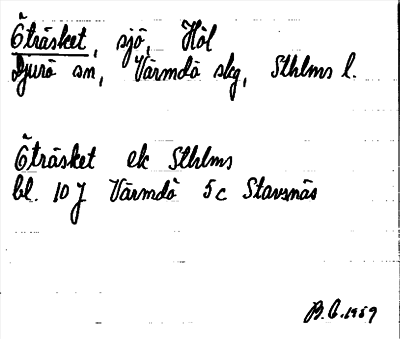 Öträsket, sjö, Höl
Djurö sn, Värmdö skg, Sthlms l.
Öträsket ek Sthlms
bl. 10 J Värmdö 5c Stavsnäs
B.C. 1959